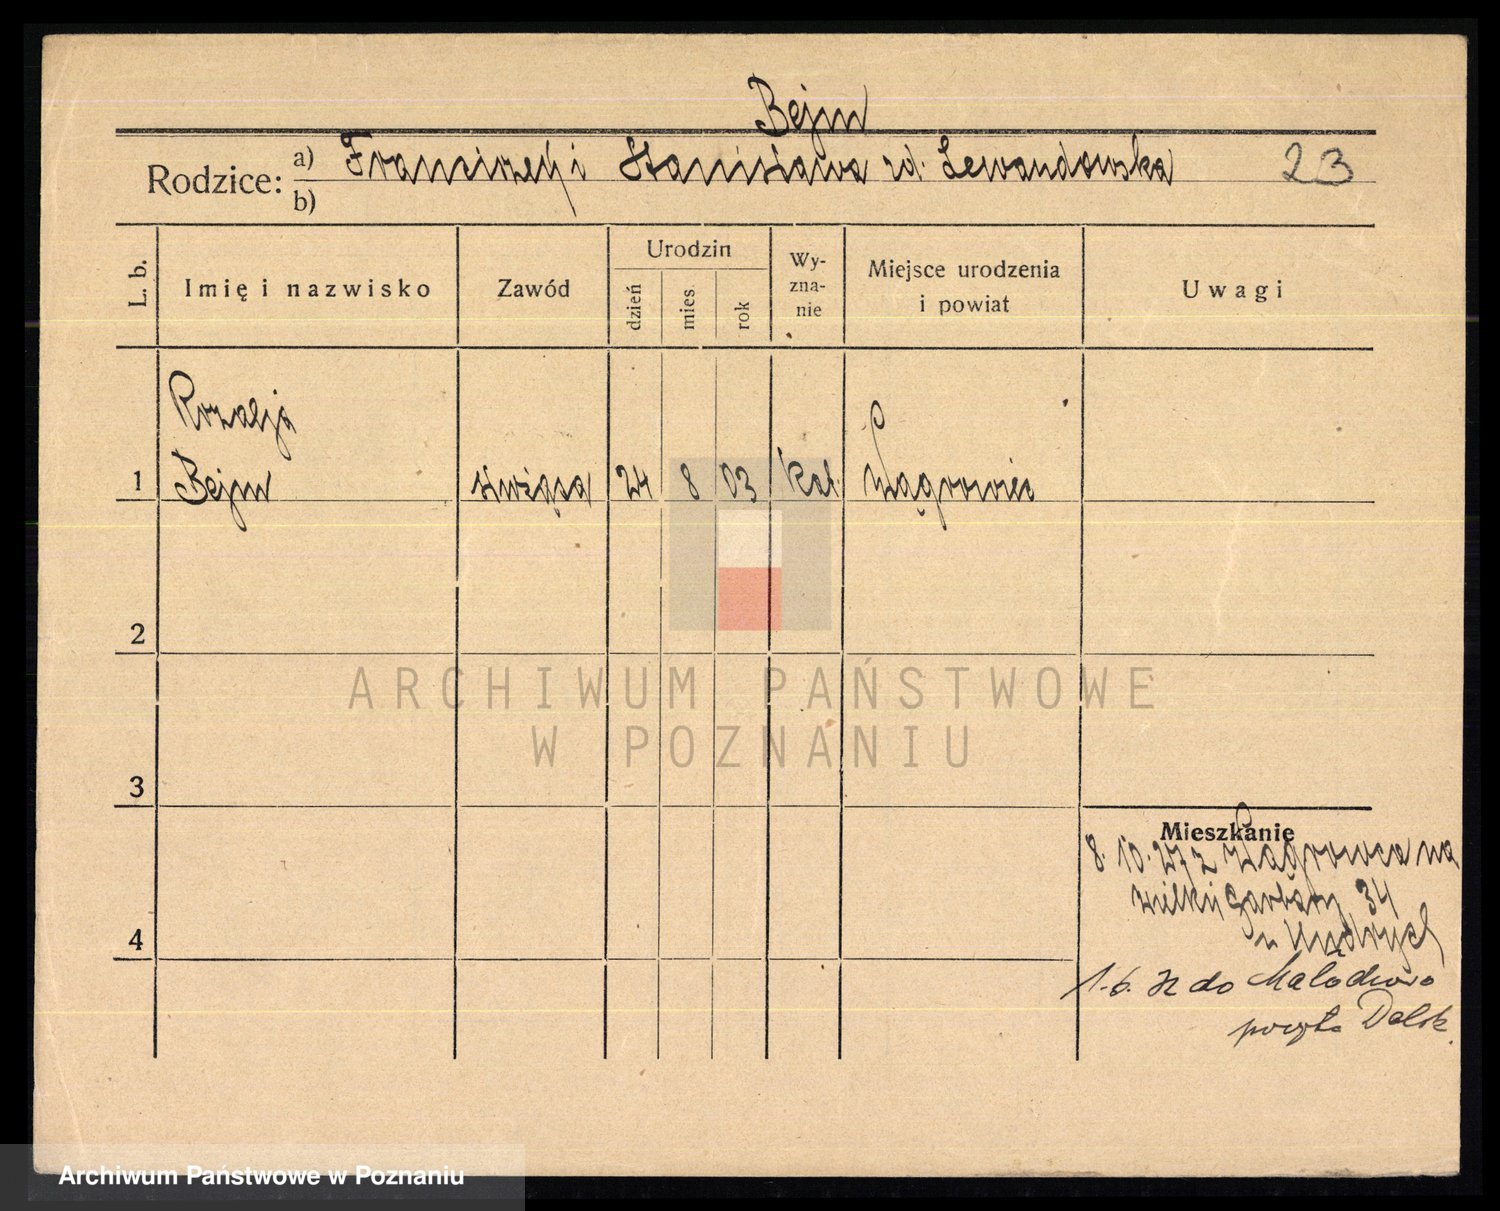 Bejm
Rodzice: a) Franciszek i Stanisława zd. Lewandowska 23
b)
L. b. Imię i nazwisko Zawód Urodzin dzień mies rok Wy-zna-nie Miejsce urodzenia i powiat Uwagi
Rozalja
1 Bejm służąca 24 8 03 kat. Wągrowiec
2
3
4
Mieszkanie
8. 10. 27 z Wągrowca na
wielkie Garbary 34
u
1. 6. do
poczta Dolsk.
ARCHIWUM PAŃSTWOWE
W POZNANIU
Archiwum Państwowe w Poznaniu